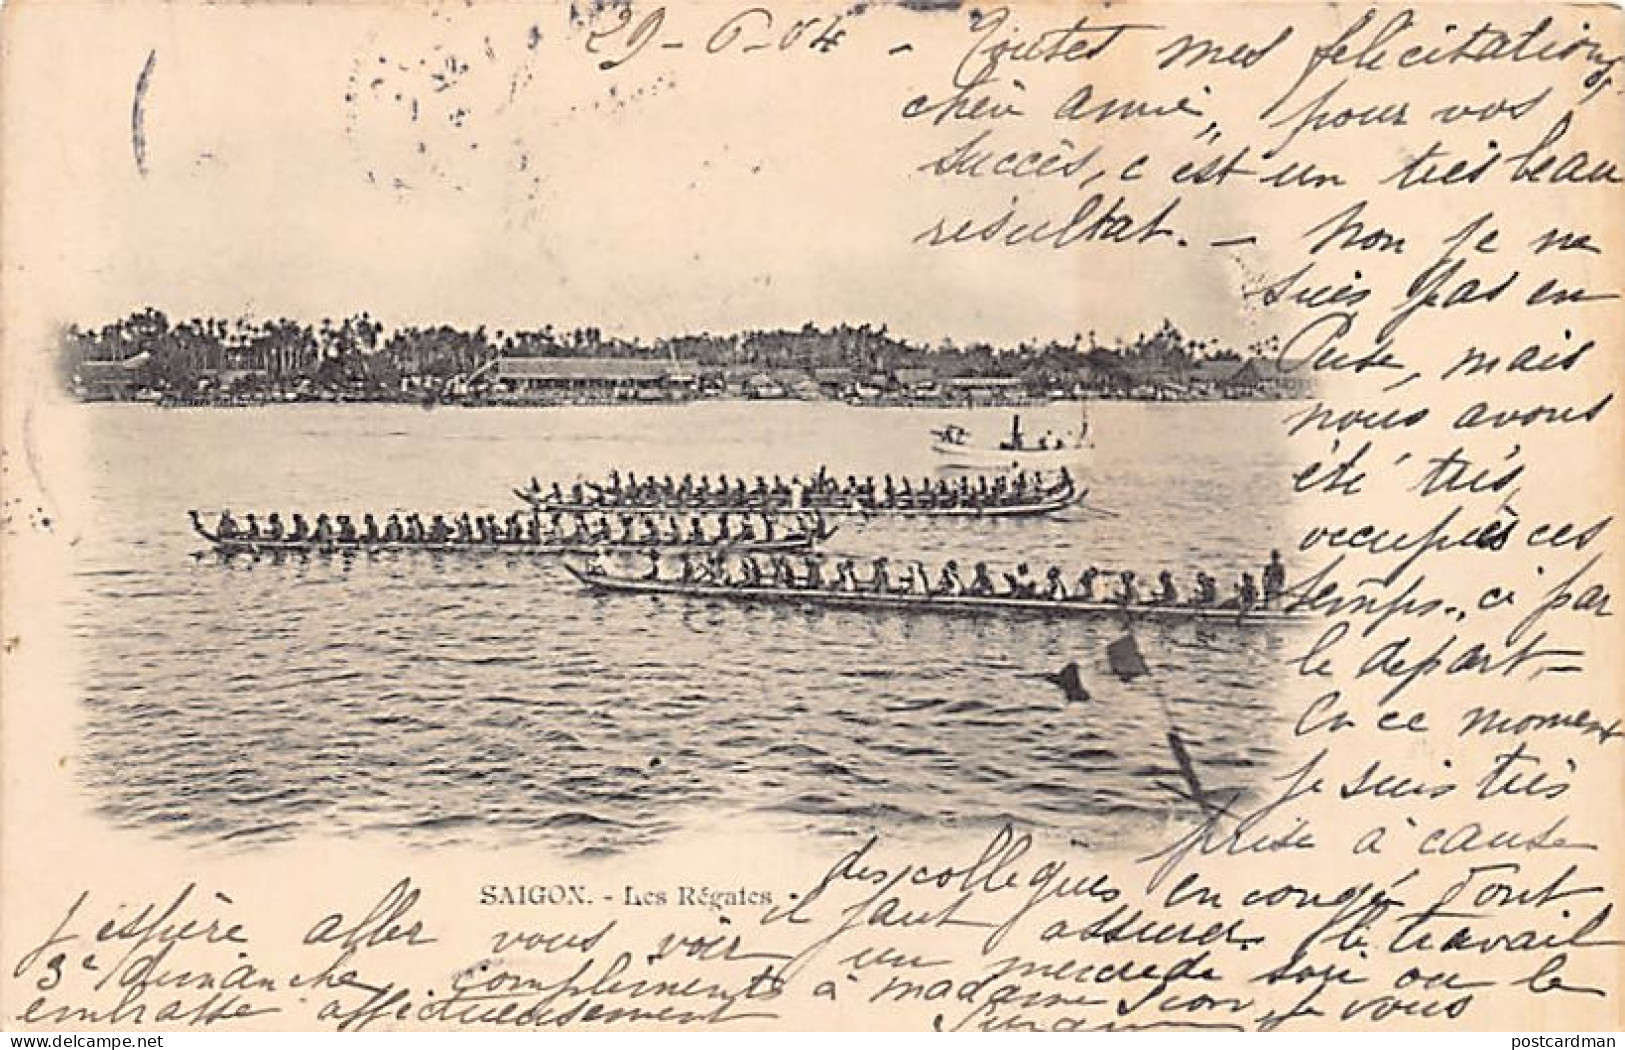 29-6-04 - Toutes mes felicitations,
chère amie, pour vos
succès, c'est un très beau
résultat. - Non je ne
suis pas en
mais
nous avons
été très
occupées ces
temps-ci par
le départ -
En ce moment
je suis très
prise à cause
des collègues en congé dont
il faut assurer le travail
SAIGON. - Les Régates
J'espère aller vous voir un mercredi soir ou le
3e dimanche compliments à madame je vous
embrasse affectueusement
postcardman